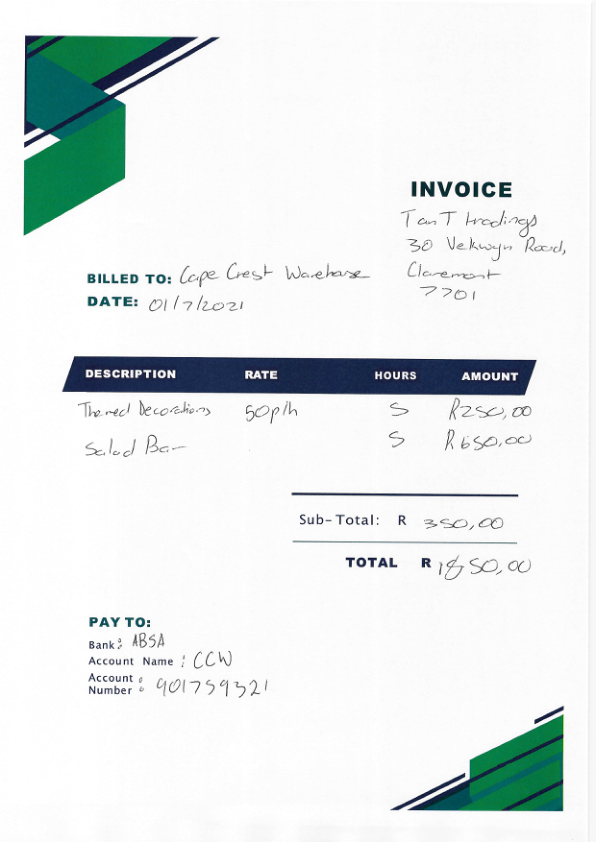 INVOICE
TanT tradings
30 Velkwyn Road,
Claremont
7701
BILLED TO: Cape Crest Warehouse
DATE: 01/7/2021
DESCRIPTION RATE HOURS AMOUNT
Themed Decorations 50p/h 5 R250,00
Salad Bar 5 R650,00
Sub-Total: R 350,00
TOTAL R 1850,00
PAY TO:
Bank: ABSA
Account Name : CCW
Account
Number : 901759321